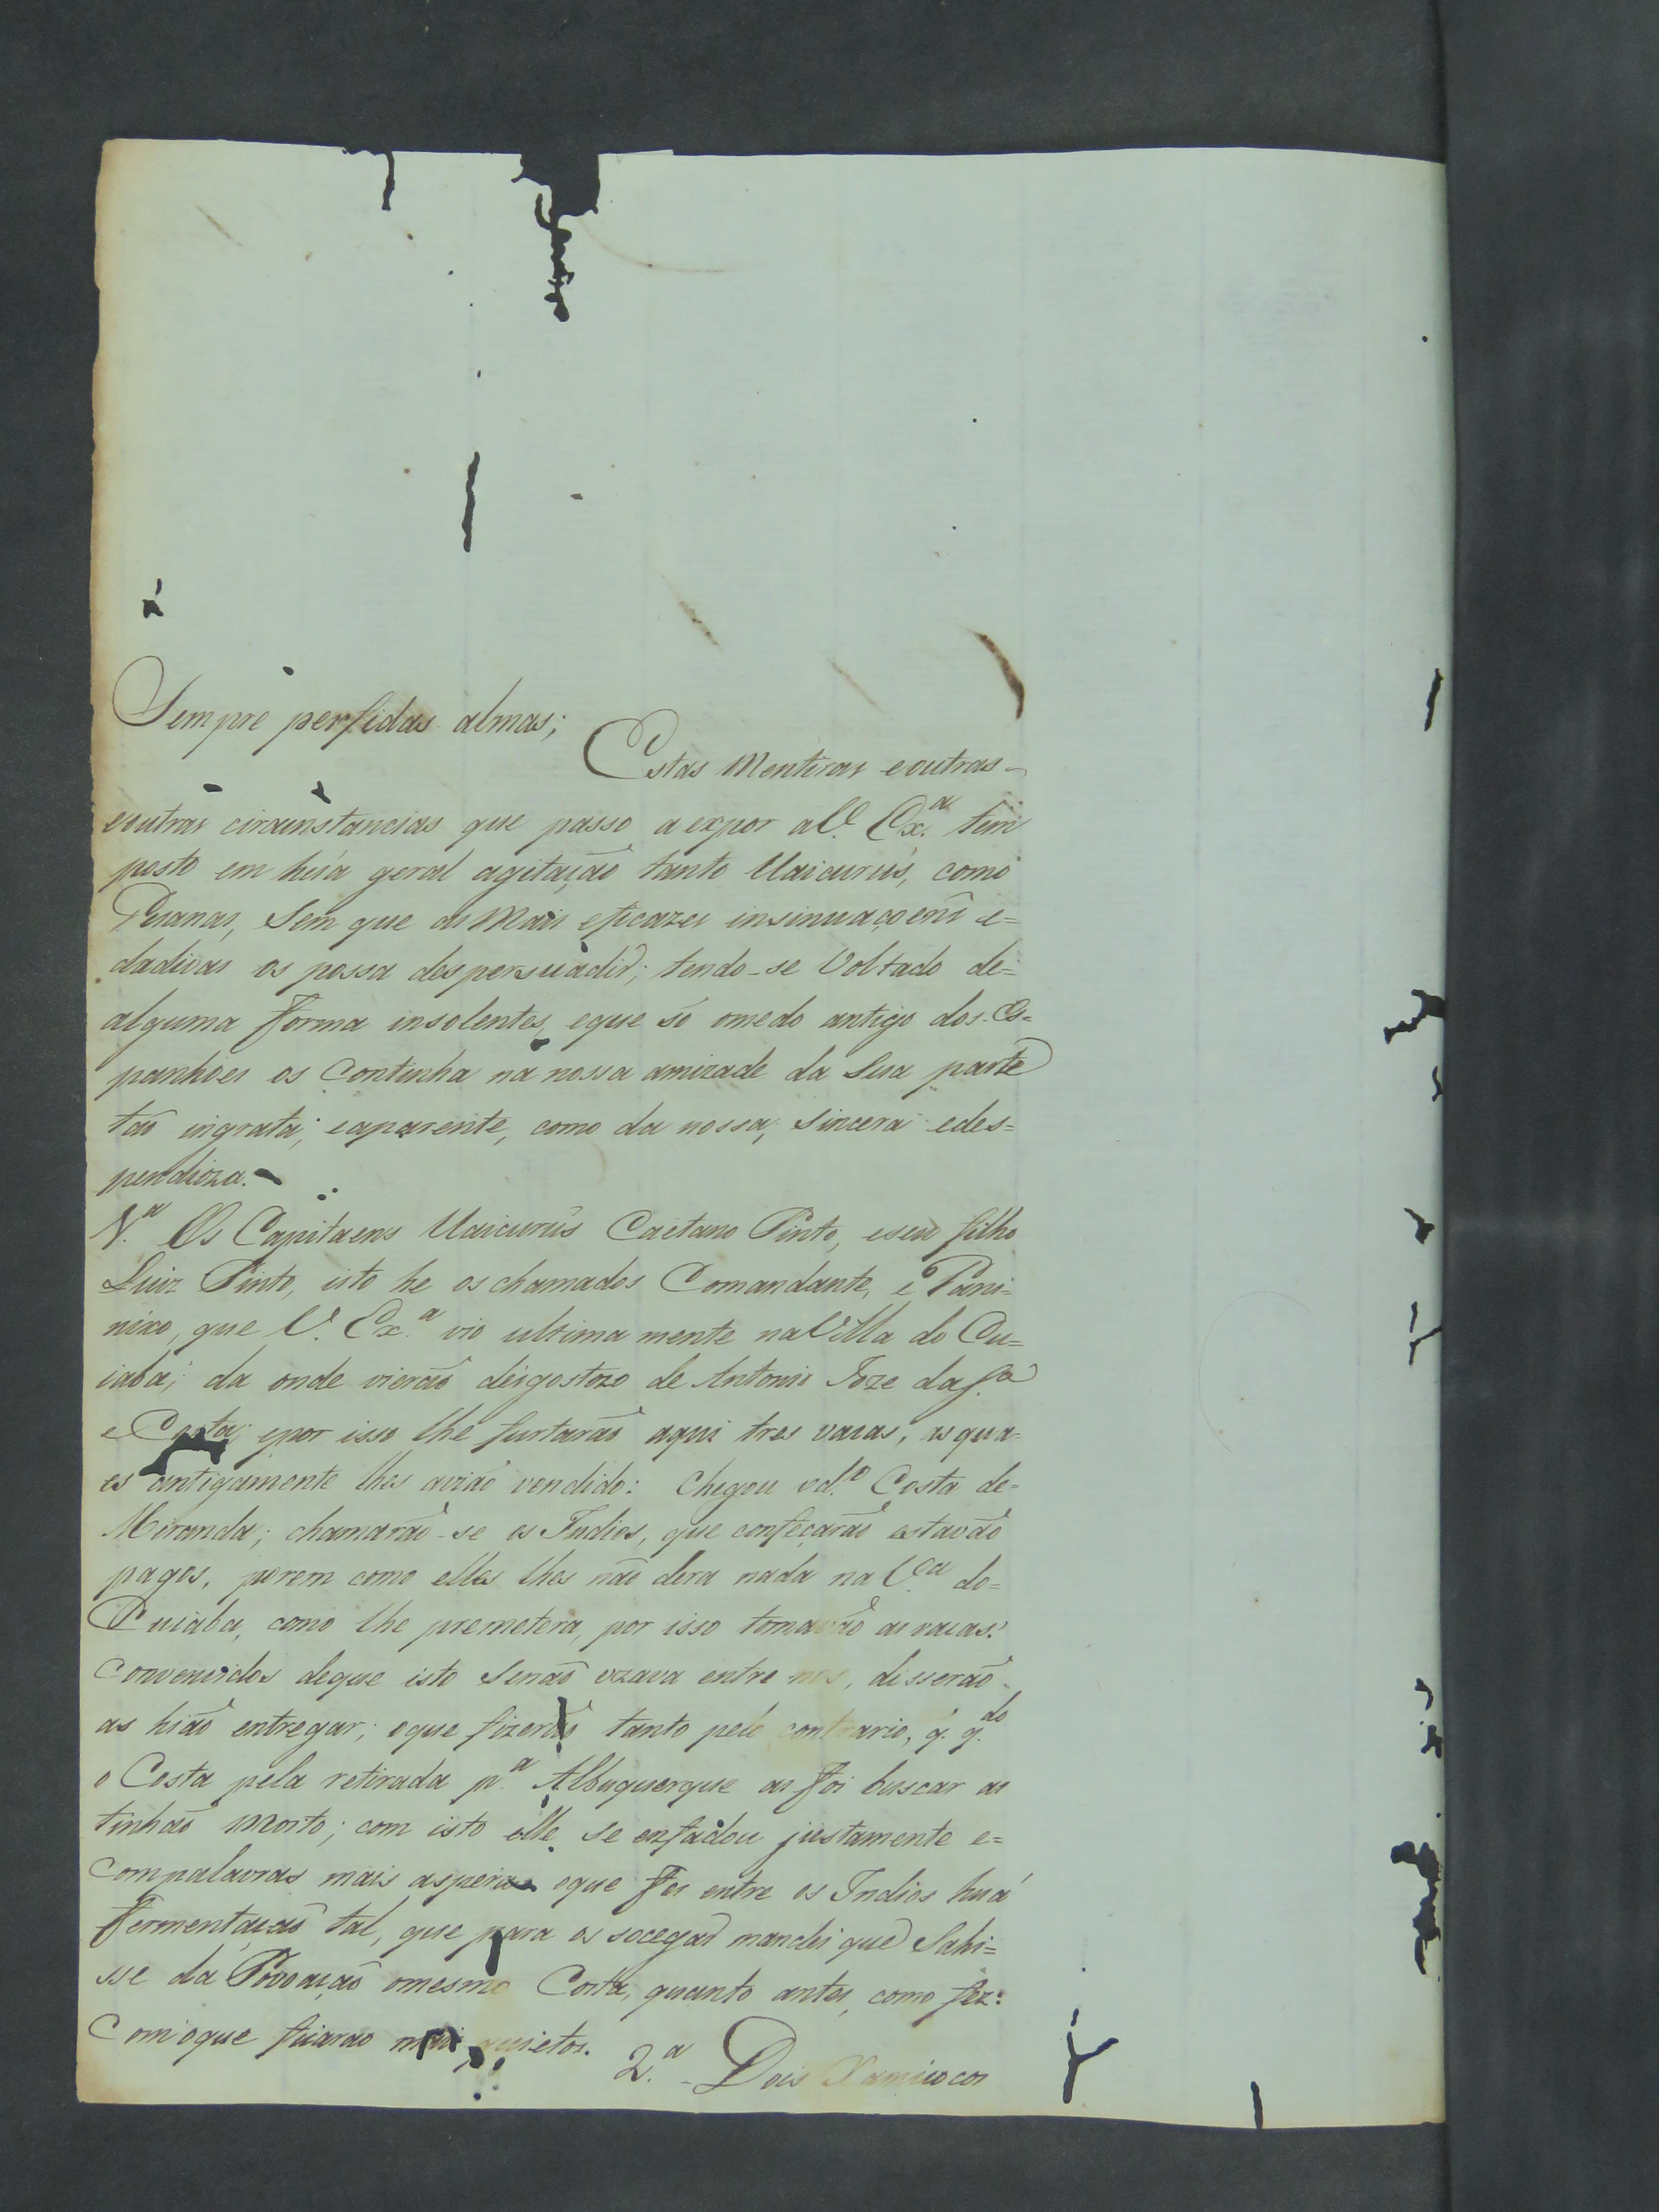 Sempre perfidas almas;
Estas Mentiras e outras =
e outras circunstancias que passo a expor a V. Ex.ª tem
posto em húa geral agitação tanto Uaicurús, como
Guanas, Sem que as Mais eficazes insinuaçoens e=
dadivas os possa despersuadir; tendo-se Voltado de=
alguma forma insolentes, eque só omedo antigo dos Es=
panhoes os Continha na nossa amizade da Sua parte
tão ingrata, eaparente, como da nossa, Sincera edes=
pendioza.
1.ª Os Capitaens Uaicurús Caetano Pinto, eseu filho
Luiz Pinto, isto he os chamados Comandante, e Pani=
nixo, que V. Ex.ª vio ultima mente na Villa do Cu=
iabá; da onde vierão desgostozo de Antonio Joze da S.ª
e Costa; epor isso lhe furtarão aqui tres vacas, as qua=
es antigamente lhes avião vendido: Chegou od.º Costa de=
Miranda; chamarão-se os Indios, que confeçarão estavão
pagos, porem como elles lhes não dera nada na V.ª do=
Cuiaba, como lhe premetera, por isso tomarão as vacas:
Convencidos deque isto Senão uzava entre nos, disserão
as hião entregar; oque fizerão tanto pelo contrario, q. q.do
o Costa pela retirada p.ª Albuquerque as foi buscar as
tinhão Morto; com isto elle se enfadou justamente e=
Compalavras mais asperas oque fes entre os Indios huá
fermentação tal, que para os socegar mandei que Sahi=
sse da Povoação omesmo Costa, quanto antes, como fez:
Com oque ficarao mais quietos.
2.ª Dois Xamicocos